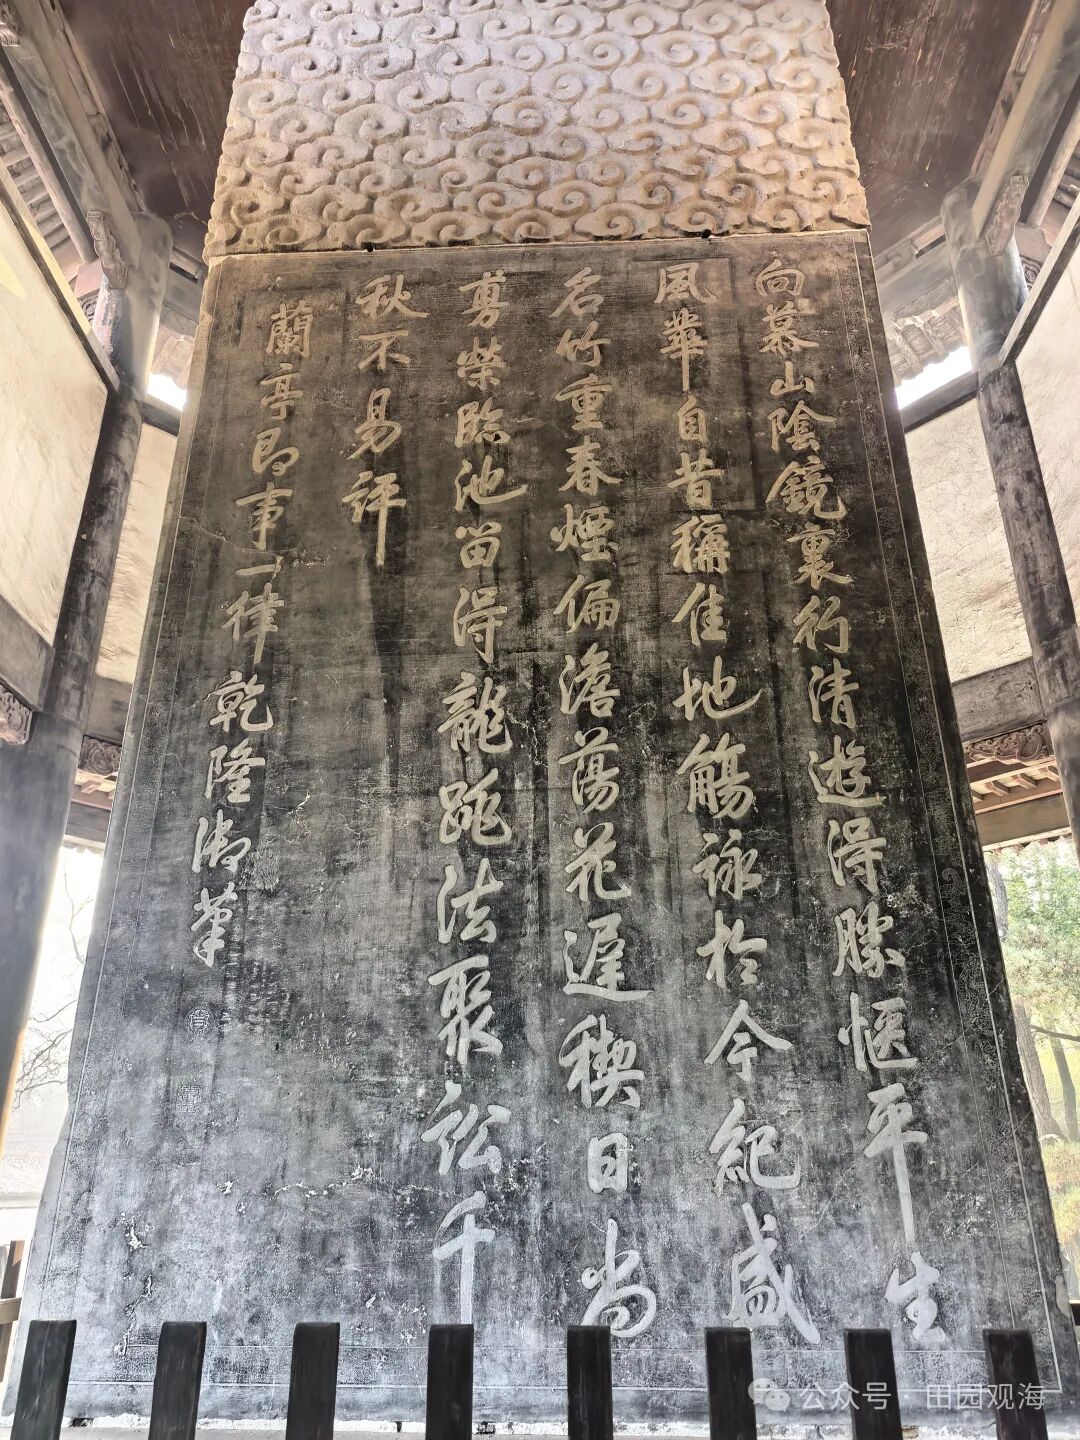 向慕山陰鏡裏行清遊得勝愜平生
風華自昔稱佳地觴詠於今紀盛
名竹重春煙偏澹蕩花遲稧日尚
剪榮臨池留得龍跳法聚訟千
秋不易評
蘭亭即事一律乾隆御筆
公众号 · 田园观海